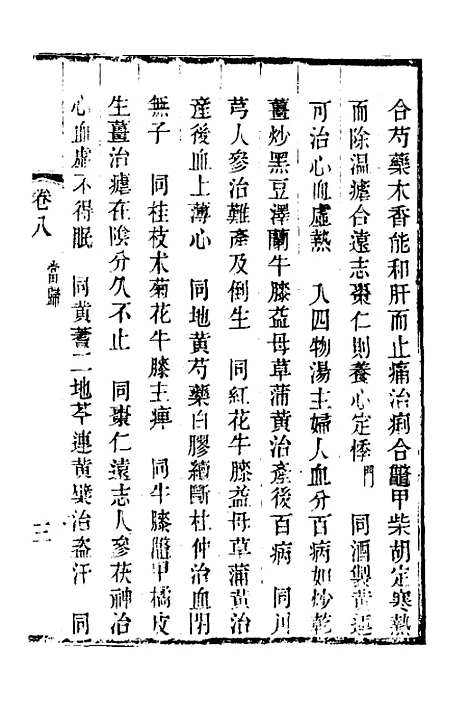 合芍藥木香能和肝而止痛治痢合鼈甲柴胡定寒熱
而除温瘧合遠志棗仁則養心定悸門　同酒製黄連
可治心血虛熱　入四物湯主婦人血分百病如炒乾
薑炒黑豆澤蘭牛膝益母草蒲黄治產後百病　同川
芎人參治難產及倒生　同紅花牛膝益母草蒲黄治
產後血上薄心　同地黄芍藥白膠續斷杜仲治血閉
無子　同桂枝朮菊花牛膝主痺　同牛膝鼈甲橘皮
生薑治瘧在陰分久不止　同棗仁遠志人參茯神治
心血虛不得眠　同黄耆二地芩連黄檗治盗汗　同
卷八　當歸　三